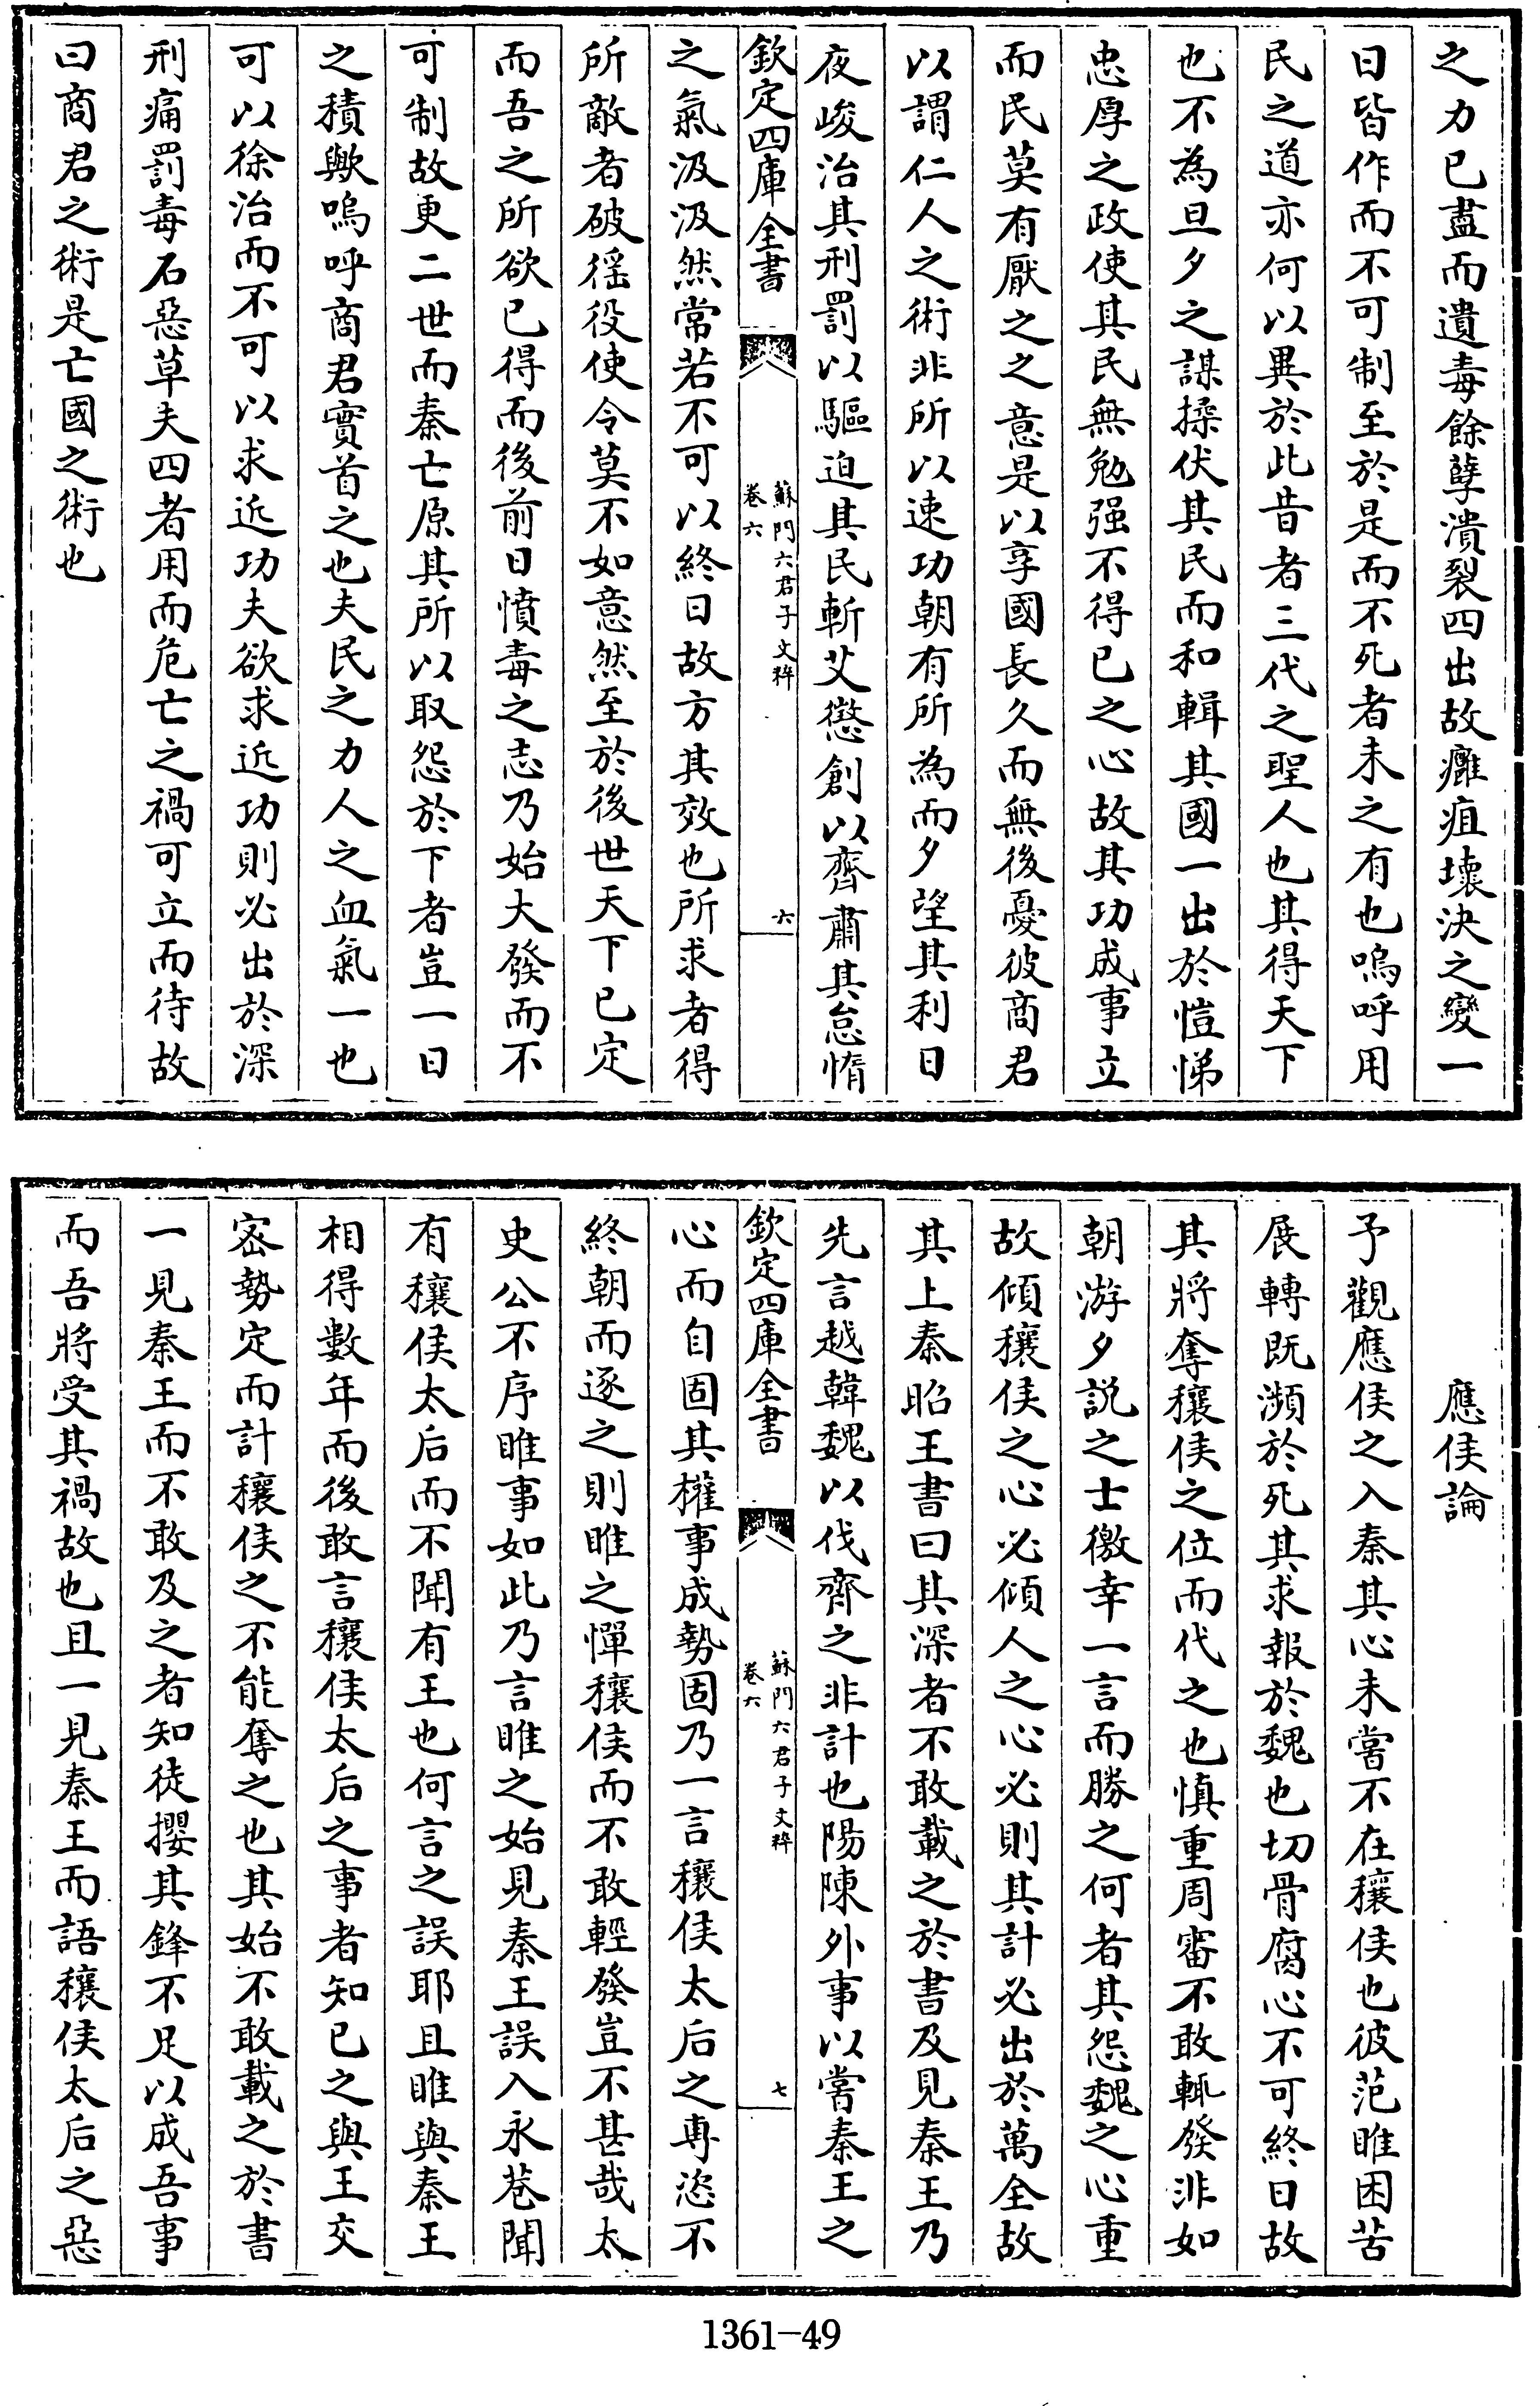 之力已盡而遺毒餘孽潰裂四出故癰疽壞決之變一
日皆作而不可制至於是而不死者未之有也嗚呼用
民之道亦何以異於此昔者三代之聖人也其得天下
也不為旦夕之謀揉伏其民而和輯其國一出於愷悌
忠厚之政使其民無勉强不得已之心故其功成事立
而民莫有厭之之意是以享國長久而無後憂彼商君
以謂仁人之術非所以速功朝有所為而夕望其利日
夜峻治其刑罰以驅迫其民斬艾懲創以齊肅其怠惰
欽定四庫全書
蘇門六君子文粹
卷六
六
之氣汲汲然常若不可以終日故方其效也所求者得
所敵者破徭役使令莫不如意然至於後世天下已定
而吾之所欲已得而後前日憤毒之志乃始大發而不
可制故更二世而秦亡原其所以取怨於下者豈一日
之積歟嗚呼商君實首之也夫民之力人之血氣一也
可以徐治而不可以求近功夫欲求近功則必出於深
刑痛罰毒石惡草夫四者用而危亡之禍可立而待故
曰商君之術是亡國之術也
應侯論
予觀應侯之入秦其心未嘗不在穰侯也彼范睢困苦
展轉既瀕於死其求報於魏也切骨腐心不可終日故
其將奪穰侯之位而代之也慎重周審不敢輒發非如
朝游夕説之士徼幸一言而勝之何者其怨魏之心重
故傾穰侯之心必傾人之心必則其計必出於萬全故
其上秦昭王書曰其深者不敢載之於書及見秦王乃
先言越韓魏以伐齊之非計也陽陳外事以嘗秦王之
欽定四庫全書
蘇門六君子文粹
卷六
七
心而自固其權事成勢固乃一言穰侯太后之專恣不
終朝而逐之則睢之憚穰侯而不敢輕發豈不甚哉太
史公不序睢事如此乃言睢之始見秦王誤入永巷聞
有穰侯太后而不聞有王也何言之誤耶且睢與秦王
相得數年而後敢言穰侯太后之事者知已之與王交
宻勢定而計穰侯之不能奪之也其始不敢載之於書
一見秦王而不敢及之者知徒攖其鋒不足以成吾事
而吾將受其禍故也且一見秦王而語穰侯太后之惡
1361-49